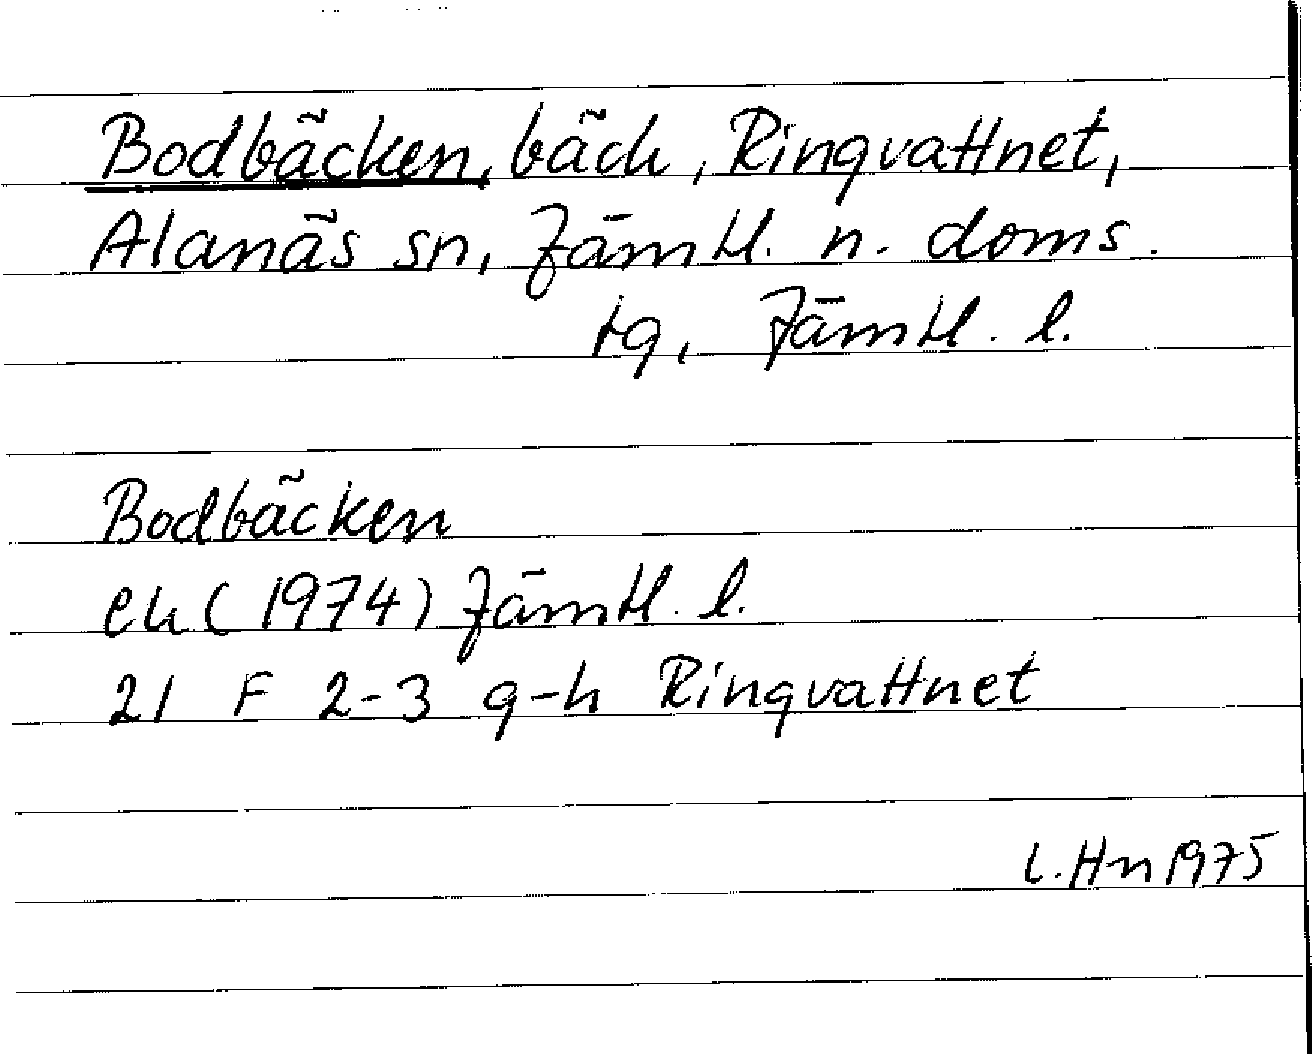 Bodbäcken, bäck, Ringvattnet,
Alanäs sn, Jämtl. n. doms.
tg, Jämtl. l.
Bodbäcken
ek (1974) Jämtl. l.
21 F 2-3 g-h Ringvattnet
L. Hn 1975